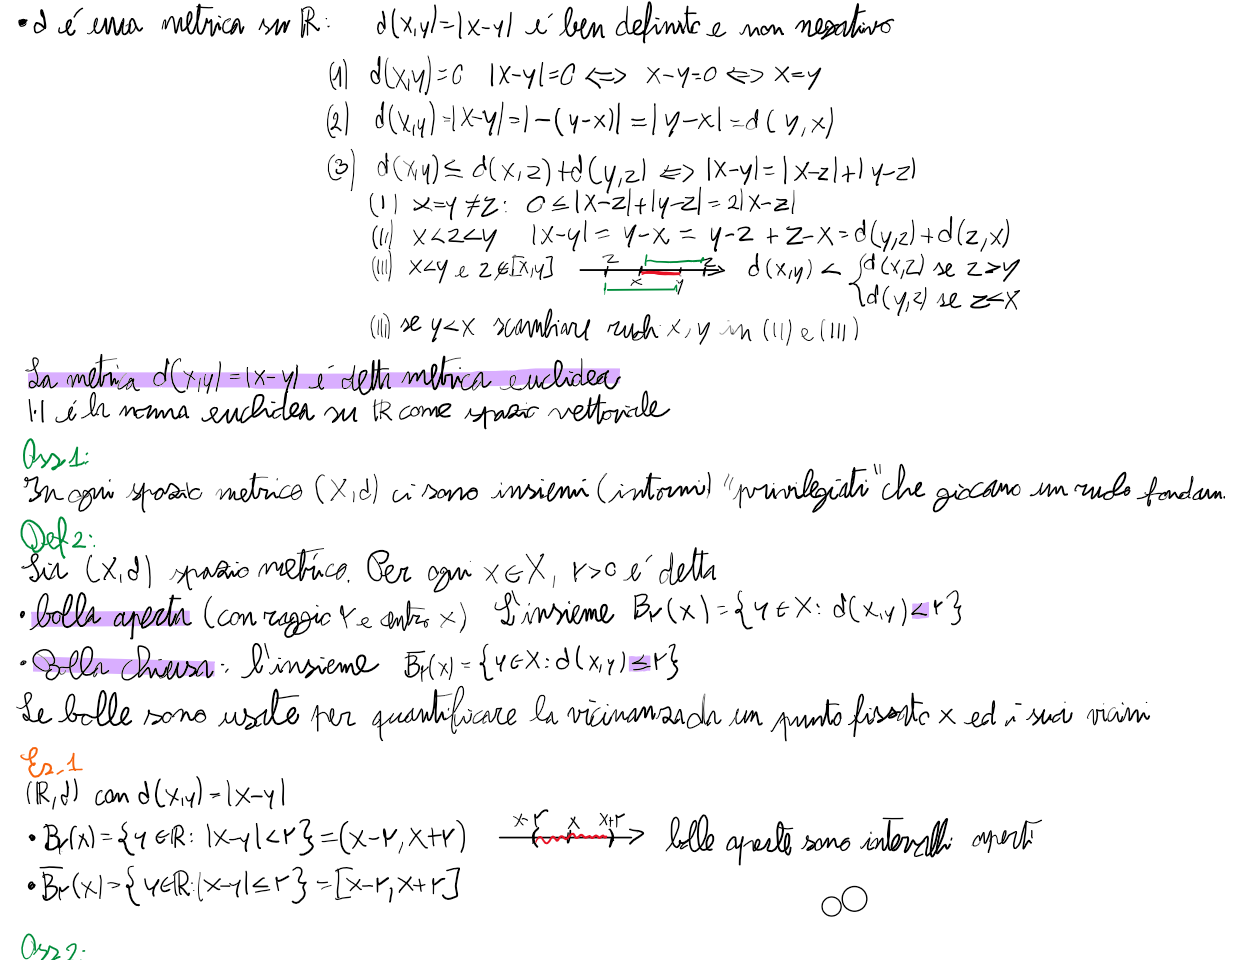 • d é una metrica su ℝ: d(x,y)=|x-y| é ben definito e non negativo
(1) d(x,y)=0 |x-y|=0 ⟺ x-y=0 ⟺ x=y
(2) d(x,y)=|x-y|=|-(y-x)|=|y-x|=d(y,x)
(3) d(x,y)≤ d(x,z)+d(y,z) ⟺ |x-y|=|x-z|+|y-z|
(I) x=y≠z: 0≤|x-z|+|y-z|=2|x-z|
(II) x<z<y |x-y|= y-x = y-z + z-x=d(y,z)+d(z,x)
(III) x<y e z∉[x,y] z x y z d(x,y) < { d(x,z) se z>y
d(y,z) se z<x
(III) se y<x scambiare ruoli x,y in (II) e (III)
La metrica d(x,y)=|x-y| é detta metrica euclidea
|·| é la norma euclidea su ℝ come spazio vettoriale
Oss 1:
In ogni spazio metrico (X,d) ci sono insiemi (intorni) "privilegiati" che giocano un ruolo fondam.
Def 2:
Sia (X,d) spazio metrico. Per ogni x∈X, r>0 é detta
• bolla aperta (con raggio r e centro x) L'insieme Br(x)={y∈X: d(x,y)<r}
• Bolla chiusa: l'insieme B̅r(x)={y∈X: d(x,y)≤r}
Le bolle sono usate per quantificare la vicinanza da un punto fissato x ed i suoi vicini
Es. 1
(ℝ,d) con d(x,y)=|x-y|
• Br(x)={y∈ℝ: |x-y|<r}=(x-r, x+r) x-r x x+r bolle aperte sono intervalli aperti
• B̅r(x)={y∈ℝ:|x-y|≤r}=[x-r, x+r]
Oss 2: